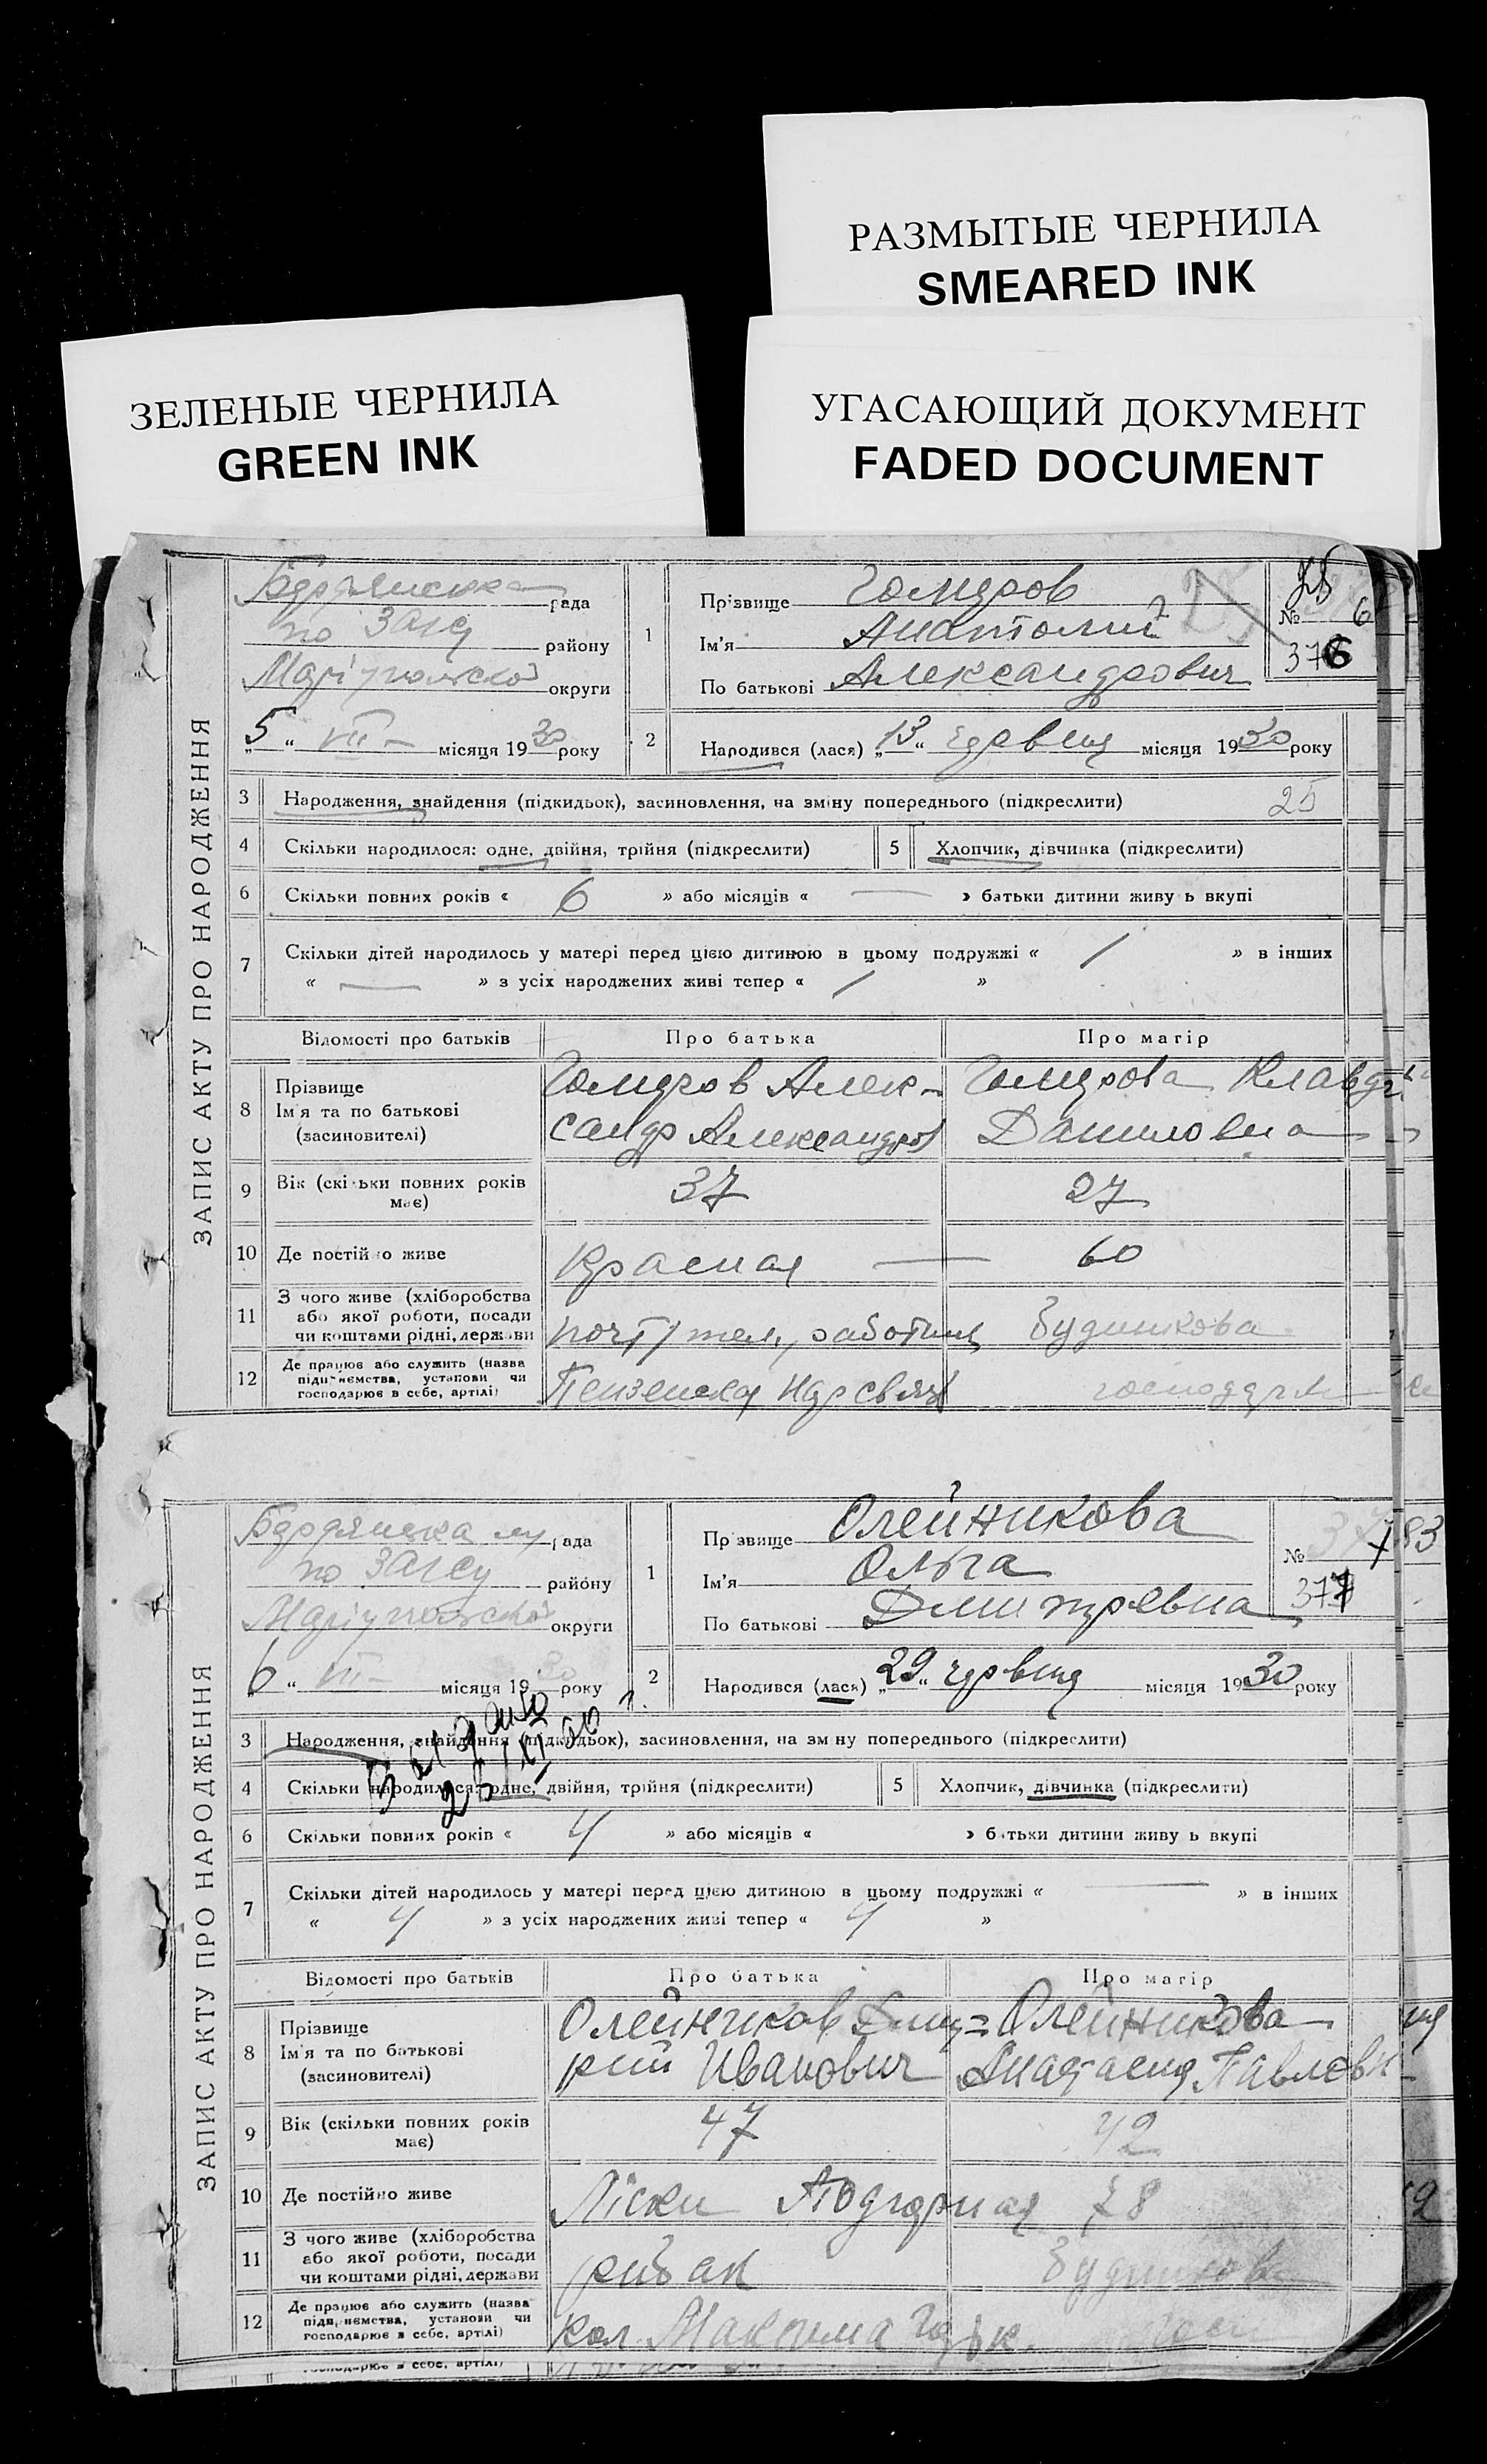 РАЗМЫТЫЕ ЧЕРНИЛА
SMEARED INK
ЗЕЛЕНЫЕ ЧЕРНИЛА
GREEN INK
УГАСАЮЩИЙ ДОКУМЕНТ
FADED DOCUMENT
ЗАПИС АКТУ ПРО НАРОДЖЕННЯ
Бердянська рада
по ЗАГСу району
Маріупольської округи
„5“ VII місяця 1930 року
1 Прізвище
Ім'я Анатолий
По батькові Александрович
№ 6
376
2 Народився (лася) „13“ червня місяця 1930 року
3 Народження, знайдення (підкидьок), засиновлення, на зміну попереднього (підкреслити) 25
4 Скільки народилося: одне, двійня, трійня (підкреслити) 5 Хлопчик, дівчинка (підкреслити)
6 Скільки повних років « 6 » або місяців « — » батьки дитини живуть вкупі
7 Скільки дітей народилось у матері перед цією дитиною в цьому подружжі « 1 » в інших
« — » з усіх народжених живі тепер « 1 »
Відомості про батьків Про батька Про матір
8 Прізвище
Ім'я та по батькові
(засиновителі)
Алек-
сандр Александров
Клавдия
Даниловна
9 Вік (скільки повних років має) 37 27
10 Де постійно живе Красная — 60
11 З чого живе (хліборобства
або якої роботи, посади
чи коштами рідні, держави
почт, тел, работник
12 Де працює або служить (назва
підприємства, установи чи
господарює в себе, артілі)
ЗАПИС АКТУ ПРО НАРОДЖЕННЯ
Бердянська рада
по ЗАГСу району
Маріупольської округи
„6“ VII місяця 1930 року
1 Прізвище Олейникова
Ім'я Ольга
По батькові Дмитревна
№
377
83
2 Народився (лася) „29“ червня місяця 1930 року
Видано
3 Народження, знайдення (підкидьок), засиновлення, на зміну попереднього (підкреслити)
4 Скільки народилося: одне, двійня, трійня (підкреслити) 5 Хлопчик, дівчинка (підкреслити)
6 Скільки повних років « 4 » або місяців « » батьки дитини живуть вкупі
7 Скільки дітей народилось у матері перед цією дитиною в цьому подружжі « — » в інших
« 4 » з усіх народжених живі тепер « 4 »
Відомості про батьків Про батька Про матір
8 Прізвище
Ім'я та по батькові
(засиновителі)
Олейников Дмит=
рий Иванович
Олейникова
Анастасия Павловн
9 Вік (скільки повних років має) 47 42
10 Де постійно живе Ліски Подгорная 78
11 З чого живе (хліборобства
або якої роботи, посади
чи коштами рідні, держави
рибак
12 Де працює або служить (назва
підприємства, установи чи
господарює в себе, артілі)
кол. Максима Горьк.
господарює в себе, артілі)